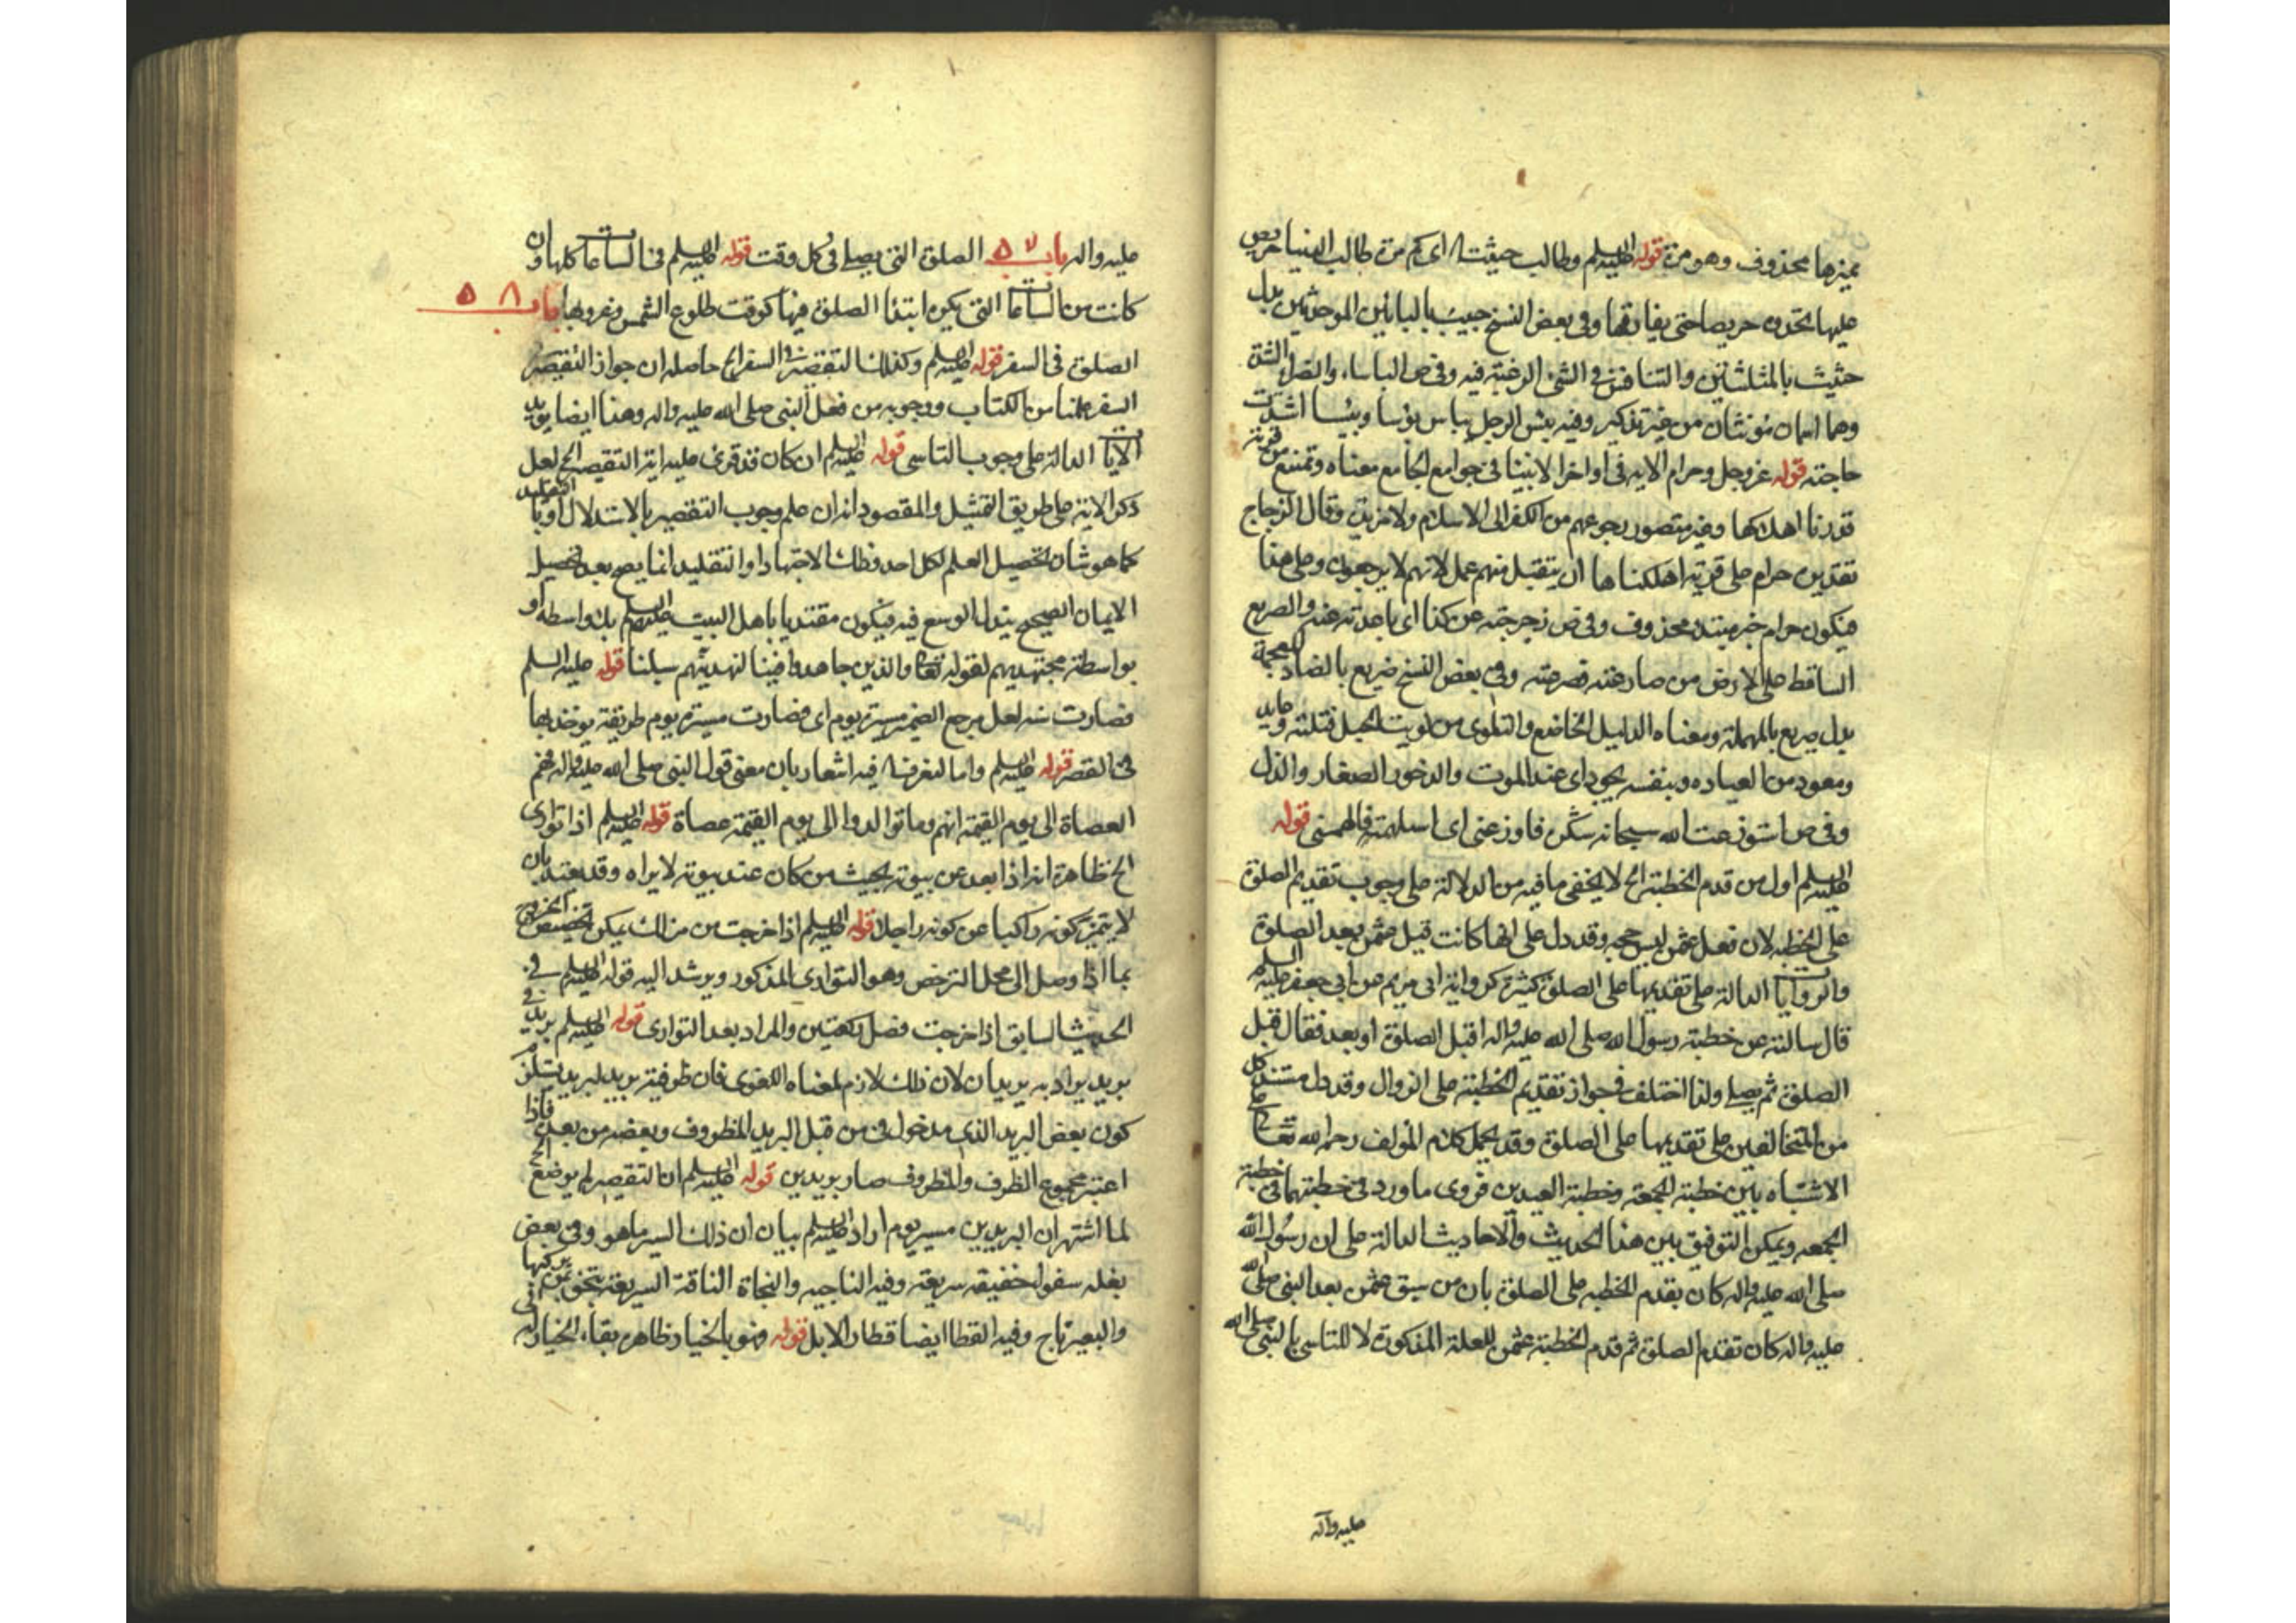 مميزها محذوف وهو مرة قوله عليه السلم وطالب حيثت الخ اى كم مرة طالب الدنيا حريص
عليها تجدون حريصا حتى يفارقها وفى بعض النسخ حبيب بالبائين الموحدتين بدل
حثيث بالمثلثتين والتنافس فى الشئ الرغبة فيه وفى ص الباساء والضراء الشدة
وهما اسمان مؤنثان من غير تذكير وفيه بئس الرجل يباس بؤسا وبئسا اشتدت
حاجته قوله عز وجل وحرام الاية فى اواخر الانبيا فى جوامع الجامع معناه وممتنع من قرية
قدرنا اهلاكها وغير متصور رجوعهم من الكفر الى الاسلام ولا مزيدة وقال الزجاج
تقديره حرام على قرية اهلكناها ان يتقبل منهم عمل لانهم لا يرجعون وعلى هذا
فيكون حرام خبر مبتدء محذوف وفى ص زجرجته عن كذا اى باعدته عنه والصريع
الساقط على الارض من صارعته فصرعته وفى بعض النسخ ضريع بالضاد المعجمة
بدل صريع بالمهملة ومعناه الذليل الخاضع والتلوى من لويت الحبل فتلته وعايد
ومعود من العياده وبنفسه يجود اى عند الموت والدخور الصغار والذل
وفى ص استوزعت الله سبحانه شكره فاوزعنى اى استلهمته فالهمنى قوله
عليه السلم اول من قدم الخطبة الخ لا يخفى ما فيه من الدلالة على وجوب تقديم الصلوة
على الخطبه لان فعل عثمن ليس حجه وقد دل على انها كانت قبل عثمن بعد الصلوة
والروايات الدالة على تقديمها على الصلوة كثيرة كرواية ابى مريم عن ابى جعفر عليه السلم
قال سالته عن خطبة رسول الله صلى الله عليه واله اقبل الصلوة او بعد فقال قبل
الصلوة ثم يصلى ولذا اختلف فى جواز تقديم الخطبة على الزوال وقد دل مستند كل
من المتخالفين على تقديمها على الصلوة وقد يحمل كلام المؤلف رحمه الله تعالى على
الاشتباه بين خطبة الجمعة وخطبة العيدين فروى ما ورد فى خطبتهما فى خطبة
الجمعه ويمكن التوفيق بين هذا الحديث والاحاديث الدالة على ان رسول الله
صلى الله عليه واله كان يقدم الخطبه على الصلوة بان من سبق عثمن بعد النبى صلى الله
عليه واله كان تقدم الصلوة ثم قدم الخطبة عثمن للعلة المذكورة لا للتاسى بالنبى صلى الله
عليه واله
عليه واله باب ٥٧ الصلوة التى يصلى فى كل وقت قوله عليه السلم فى الساعات كلها وان
كانت من الساعات التى يكره ابتداء الصلوة فيها كوقت طلوع الشمس وغروبها باب ٥٨
الصلوة فى السفر قوله عليه السلم وكذلك التقصير فى السفر الخ حاصله ان جواز التقصير فى
السفر علمناه من الكتاب ووجوبه من فعل النبى صلى الله عليه واله وهذا ايضا يويد
الايات الدالة على وجوب التاسى قوله عليه السلم ان كان قد قرئ عليه اية التقصير الخ لعل
ذكر الاية على طريق التمثيل والمقصود انه ان علم وجوب التقصير بالاستدلال او بالتقليد
كما هو شان تحصيل العلم لكل احد وظان الاجتهاد او التقليد انما يصح بعد تحصيل
الايمان الصحيح ببذل الوسع فيه فيكون مقتديا باهل البيت عليهم السلم بلا واسطه او
بواسطة مجتهديهم لقوله تعالى والذين جاهدوا فينا لنهدينهم سبلنا قوله عليه السلم
فصارت سنه لعل مرجع الضمير مسيرة يوم اى فصارت مسيرة يوم طريقة يوخذ بها
فى القصر قوله عليه السلم واما لنعرف الخ فيه اشعار بان معنى قول النبى صلى الله عليه واله فهم
العصاة الى يوم القيمة انهم وما توالدوا الى يوم القيمة عصاة قوله عليه السلم اذا توارى
الخ ظاهره انه اذا بعد عن بيوته بحيث من كان عند بيوته لا يراه وقد يعتد بان
لا يتميز كونه راكبا عن كونه راجلا قوله عليه السلم اذا خرجت من منزلك يمكن تخصيص الخروج
بما اذا وصل الى محل الترخص وهو التوارى المذكور ويرشد اليه قوله عليه السلم فى
الحديث السابق اذا خرجت فصل ركعتين والمراد بعد التوارى قوله عليه السلم بريد فى
بريد يراد به بريدان لان ذلك لازم لمعناه اللغوى فان ظرفية بريد لبريد يستلزم
كون بعض البريد الذى مدخول فى من قبل البريد المظروف وبعضه من بعده فاذا
اعتبر مجموع الظرف والمظروف صار بريدين قوله عليه السلم ان التقصير لم يوضع الخ
لما اشتهر ان البريدين مسير يوم اراد عليه السلم بيان ان ذلك السير ما هو وفى بعض
بغله سفواء خفيفة سريعة وفيه الناجيه والنجاة الناقة السريعة تنجو بمن يركبها
والبعير ناج وفيه القطا ايضا قطار الابل قوله وهو بالخيار ظاهره بقاء الخيار له فى